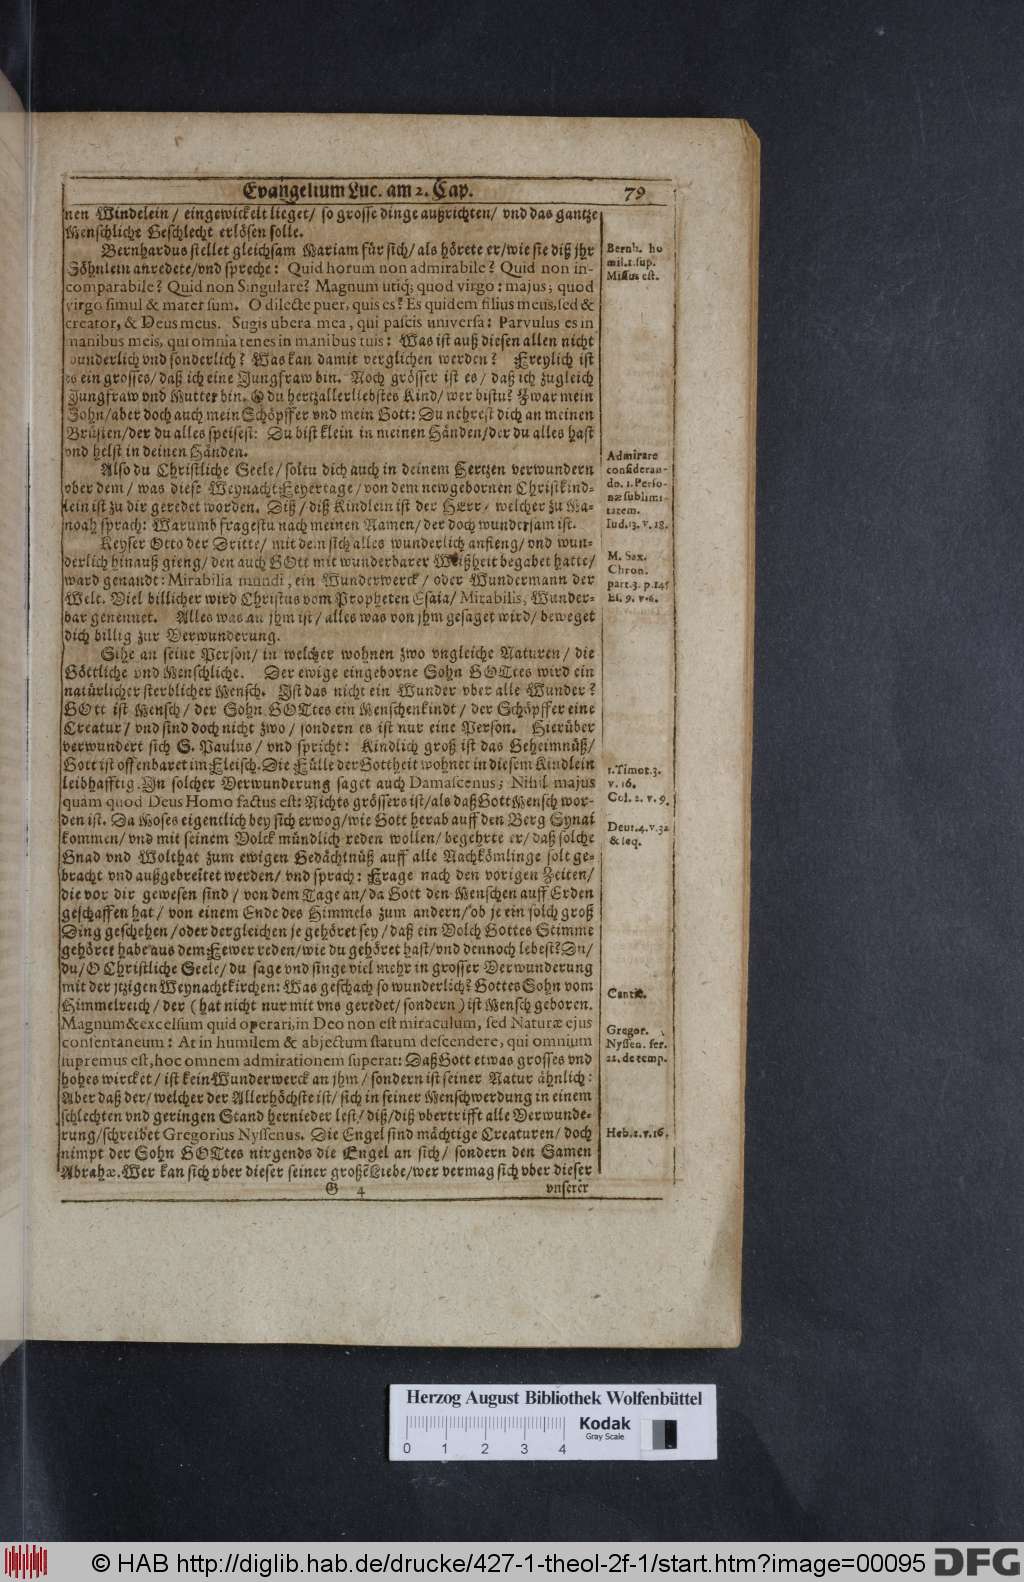 Evangelium Luc. am 2. Cap. 79
nen Windelein / eingewickelt lieget / so grosse dinge außrichten / vnd das gantze
Menschliche Geschlecht erlösen solle.
Bernhardus stellet gleichsam Mariam für sich / als hörete er / wie sie diß jhr
Söhnlein anredete / vnd spreche: Quid horum non admirabile? Quid non in-
comparabile? Quid non Singulare? Magnum utiq; quod virgo: majus; quod
virgo simul & mater sum. O dilecte puer, quis es? Es quidem filius meus, sed &
creator, & Deus meus. Sugis ubera mea, qui pascis universa: Parvulus es in
manibus meis, qui omnia tenes in manibus tuis: Was ist auß diesen allen nicht
wunderlich vnd sonderlich? Was kan damit verglichen werden? Freylich ist
es ein grosses / daß ich eine Jungfraw bin. Noch grösser ist es / daß ich zugleich
Jungfraw vnd Mutter bin. O du hertzallerliebstes Kind / wer bistu? Zwar mein
Sohn / aber doch auch mein Schöpffer vnd mein Gott: Du nehrest dich an meinen
Brüsten / der du alles speisest: Du bist klein in meinen Händen / der du alles hast
vnd helst in deinen Händen.
Also du Christliche Seele / soltu dich auch in deinem Hertzen verwundern
vber dem / was diese Weynacht Feyertage / von dem newgebornen Christkind-
lein ist zu dir geredet worden. Diß / diß Kindlein ist der HErr / welcher zu Ma-
noah sprach: Warumb fragestu nach meinen Namen / der doch wundersam ist.
Keyser Otto der Dritte / mit dem sich alles wunderlich anfieng / vnd wun-
derlich hinauß gieng / den auch GOtt mit wunderbarer Weißheit begabet hatte /
ward genandt: Mirabilia mundi, ein Wunderwerck / oder Wundermann der
Welt. Viel billicher wird Christus vom Propheten Esaia / Mirabilis, Wunder-
bar genennet. Alles was an jhm ist / alles was von jhm gesaget wird / beweget
dich billig zur Verwunderung.
Sihe an seine Person / in welcher wohnen zwo vngleiche Naturen / die
Göttliche vnd Menschliche. Der ewige eingeborne Sohn GOTtes wird ein
natürlicher sterblicher Mensch. Ist das nicht ein Wunder vber alle Wunder?
GOtt ist Mensch / der Sohn GOTtes ein Menschenkindt / der Schöpffer eine
Creatur / vnd sind doch nicht zwo / sondern es ist nur eine Person. Hierüber
verwundert sich S. Paulus / vnd spricht: Kindlich groß ist das Geheimnüß /
Gott ist offenbaret im Fleisch. Die Fülle der Gottheit wohnet in diesem Kindlein
leibhafftig. In solcher Verwunderung saget auch Damascenus; Nihil majus
quàm quod Deus Homo factus est: Nichts grössers ist / als daß Gott Mensch wor-
den ist. Da Moses eigentlich bey sich erwog / wie Gott herab auff den Berg Synai
kommen / vnd mit seinem Volck mündlich reden wollen / begehrte er / daß solche
Gnad vnd Wolthat zum ewigen Gedächtnüß auff alle Nachkömlinge solt ge-
bracht vnd außgebreitet werden / vnd sprach: Frage nach den vorigen Zeiten /
die vor dir gewesen sind / von dem Tage an / da Gott den Menschen auff Erden
geschaffen hat / von einem Ende des Himmels zum andern / ob je ein solch groß
Ding geschehen / oder dergleichen je gehöret sey / daß ein Volck Gottes Stimme
gehöret habe aus dem Fewer reden / wie du gehöret hast / vnd dennoch lebest? Du /
du / O Christliche Seele / du sage vnd singe viel mehr in grosser Verwunderung
mit der jtzigen Weynachtkirchen: Was geschach so wunderlich? Gottes Sohn vom
Himmelreich / der ( hat nicht nur mit vns geredet / sondern ) ist Mensch geboren.
Magnum & excelsum quid operari, in Deo non est miraculum, sed Naturæ ejus
consentaneum: At in humilem & abjectum statum descendere, qui omnium
supremus est, hoc omnem admirationem superat: Daß Gott etwas grosses vnd
hohes wircket / ist kein Wunderwerck an jhm / sondern ist seiner Natur ähnlich:
Aber daß der / welcher der Allerhöchste ist / sich in seiner Menschwerdung in einem
schlechten vnd geringen Stand hernieder lest / diß / diß vbertrifft alle Verwunde-
rung / schreibet Gregorius Nyssenus. Die Engel sind mächtige Creaturen / doch
nimpt der Sohn GOTtes nirgends die Engel an sich / sondern den Samen
Abrahæ. Wer kan sich vber dieser seiner großē Liebe / wer vermag sich vber dieser
G 4 vnserer
Bernh. ho
mil. 1. sup.
Missus est.
Admirare
consideran-
do. 1. Perso-
næ sublimi-
tatem.
Iud. 13. v. 18.
M. Sax.
Chron.
part. 3. p. 145
Es. 9. v. 6.
1. Timot. 3.
v. 16.
Col. 2. v. 9.
Deut. 4. v. 32
& seq.
Cantic.
Gregor.
Nyssen. ser.
22. de temp.
Heb. 2. v. 16.
Herzog August Bibliothek Wolfenbüttel
0 1 2 3 4
Kodak
Gray Scale
© HAB http://diglib.hab.de/drucke/427-1-theol-2f-1/start.htm?image=00095
DFG